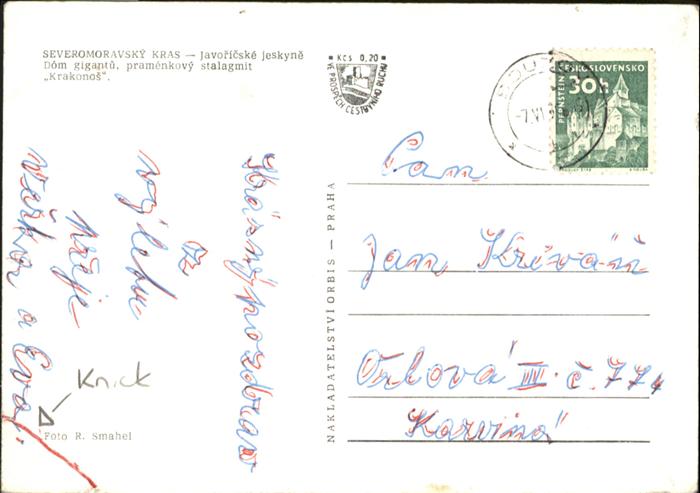 SEVEROMORAVSKÝ KRAS — Javoříčské jeskyně
Dóm gigantů, praménkový stalagmit
„Krakonoš".
Kčs 0,20
VE PROSPĚCH CESTOVNÍHO RUCHU
ČESKOSLOVENSKO
PERNŠTEJN
30h
-7.VI
Krásný pozdrav
z
výletu
přeje
a Eva.
Knick
Foto R. Smahel
NAKLADATELSTVÍ ORBIS — PRAHA
Pan
Jan Křiváň
Orlová III. č. 771
Karviná